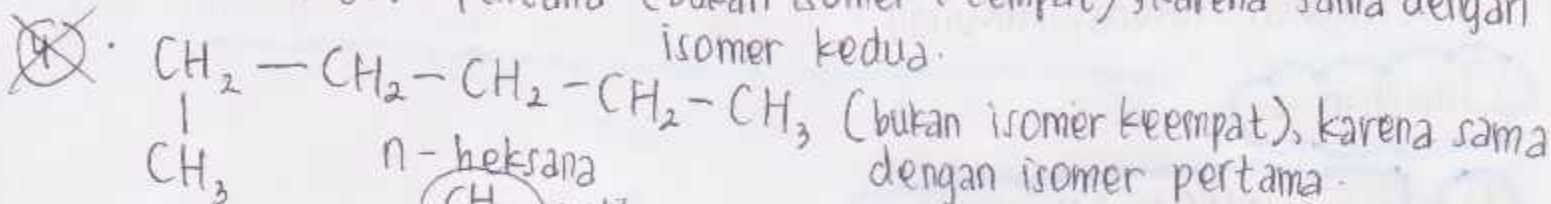 (bukan isomer keempat), karena sama dengan
isomer kedua.
4.
CH₂ — CH₂ — CH₂ — CH₂ — CH₃ (bukan isomer keempat), karena sama
CH₃ n - heksana dengan isomer pertama.
CH